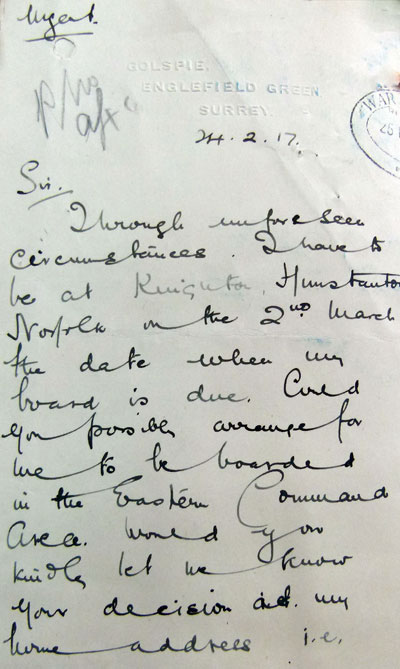 Urgent.
GOLSPIE,
ENGLEFIELD GREEN,
SURREY.
24.2.17.
WAR
Sir.
Through unforseen
circumstances. I have to
be at Knighton, Hunstanton
Norfolk on the 2nd March
the date when my
board is due. Could
you possibly arrange for
me to be boarded
in the Eastern Command
Area. Would you
kindly let me know
your decision at my
home address i.e.